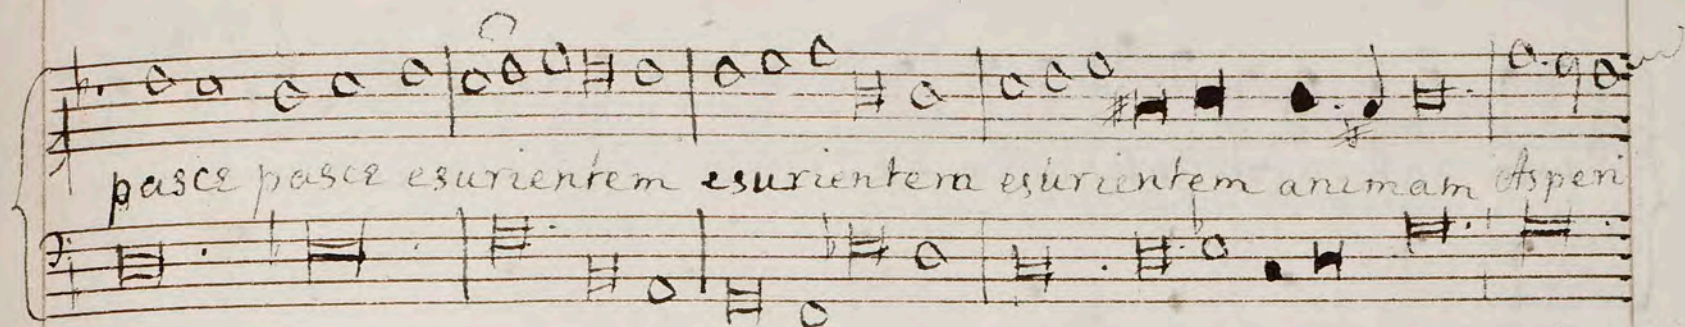 pasce pasce esurientem esurientem esurientem animam Asperi